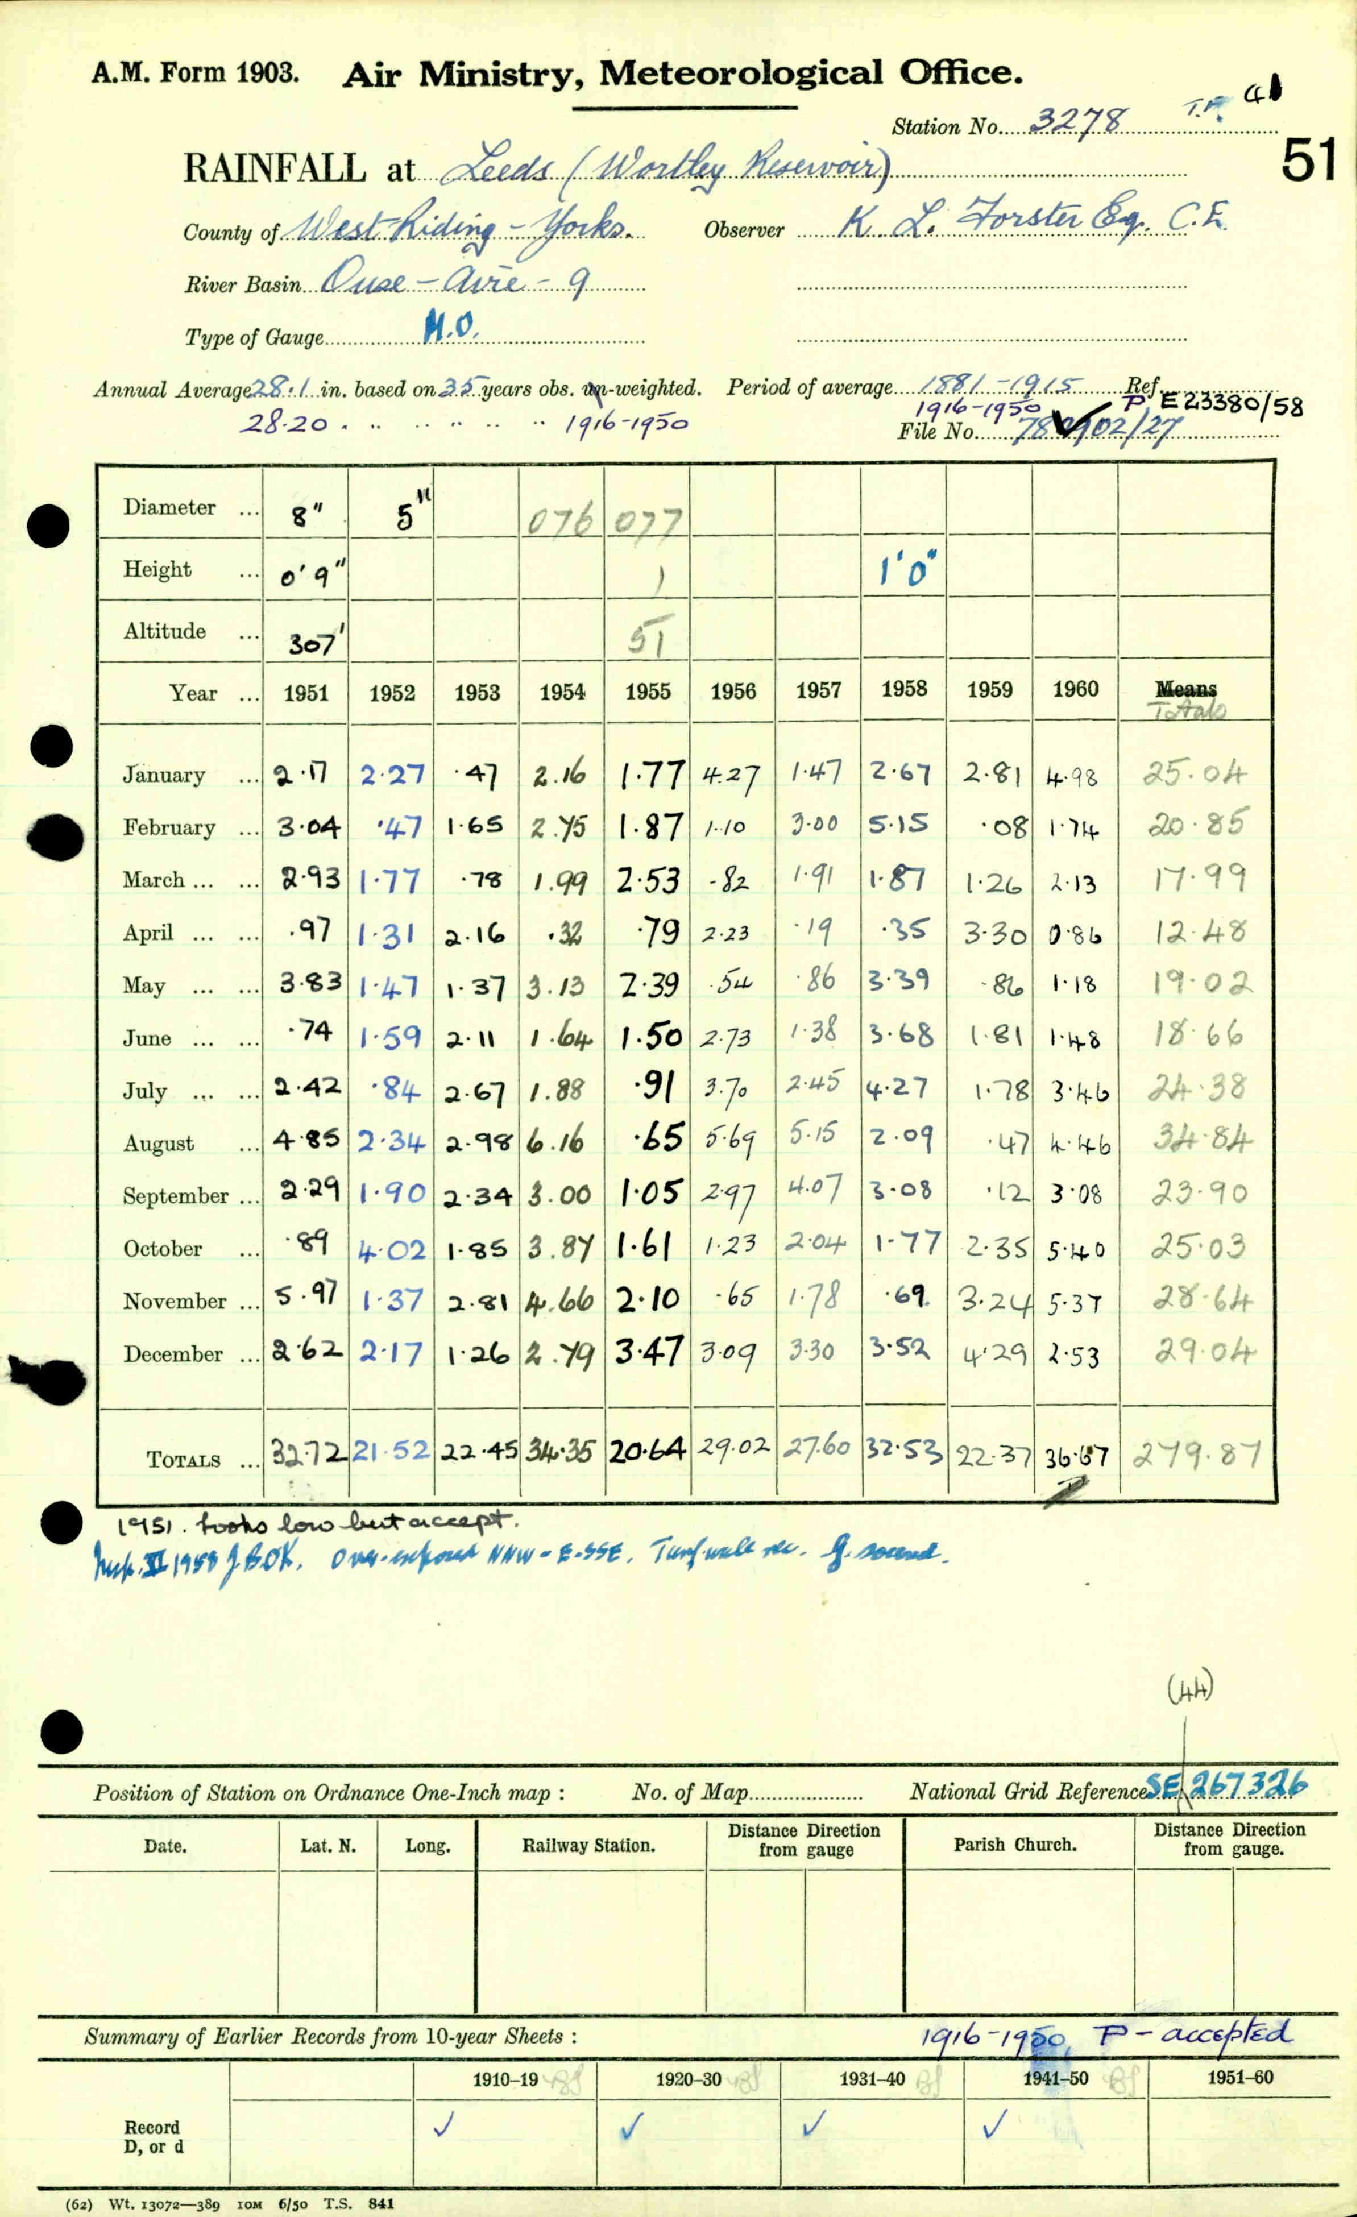 A.M. Form 1903. Air Ministry, Meteorological Office.
41
Station No. 3278 T.P.
51
RAINFALL at Leeds (Wortley Reservoir)
County of West Riding - Yorks. Observer K. L. Forster Esq. C.E.
River Basin Ouse - Aire - 9
Type of Gauge M.O.
Annual Average 28.1 in. based on 35 years obs. un-weighted. Period of average 1881-1915 Ref. P E23380/58
28.20 . " " " " " 1916-1950 1916-1950
File No.
Diameter ... 8" 5" 076 077
Height ... 0'9" 1 1'0"
Altitude ... 307' 51
Year ... 1951 1952 1953 1954 1955 1956 1957 1958 1959 1960 Means
Totals
January ... 2.17 2.27 .47 2.16 1.77 4.27 1.47 2.67 2.81 4.98 25.04
February ... 3.04 .47 1.65 2.75 1.87 1.10 3.00 5.15 .08 1.74 20.85
March ... ... 2.93 1.77 .78 1.99 2.53 .82 1.91 1.87 1.26 2.13 17.99
April ... ... .97 1.31 2.16 .32 .79 2.23 .19 .35 3.30 0.86 12.48
May ... ... 3.83 1.47 1.37 3.13 2.39 .54 .86 3.39 .86 1.18 19.02
June ... ... .74 1.59 2.11 1.64 1.50 2.73 1.38 3.68 1.81 1.48 18.66
July ... ... 2.42 .84 2.67 1.88 .91 3.70 2.45 4.27 1.78 3.46 24.38
August ... 4.85 2.34 2.98 6.16 .65 5.69 5.15 2.09 .47 4.46 34.84
September ... 2.29 1.90 2.34 3.00 1.05 2.97 4.07 3.08 .12 3.08 23.90
October ... .89 4.02 1.85 3.87 1.61 1.23 2.04 1.77 2.35 5.40 25.03
November ... 5.97 1.37 2.81 4.66 2.10 .65 1.78 .69 3.24 5.37 28.64
December ... 2.62 2.17 1.26 2.79 3.47 3.09 3.30 3.52 4.29 2.53 29.04
TOTALS ... 32.72 21.52 22.45 34.35 20.64 29.02 27.60 32.53 22.37 36.67 279.87
1951. Looks low but accept.
Insp. XI 1958 J.B. OK. Over-exposed NNW - E - SSE. Turf wall rec. G. sound.
(44)
Position of Station on Ordnance One-Inch map : No. of Map National Grid Reference SE 267326
Date. Lat. N. Long. Railway Station. Distance from Direction gauge Parish Church. Distance from Direction gauge.
Summary of Earlier Records from 10-year Sheets : 1916-1950, P - accepted
1910–19 1920–30 1931–40 1941–50 1951–60
Record ✓ ✓ ✓ ✓
D, or d
(62) Wt. 13072—389 10M 6/50 T.S. 841